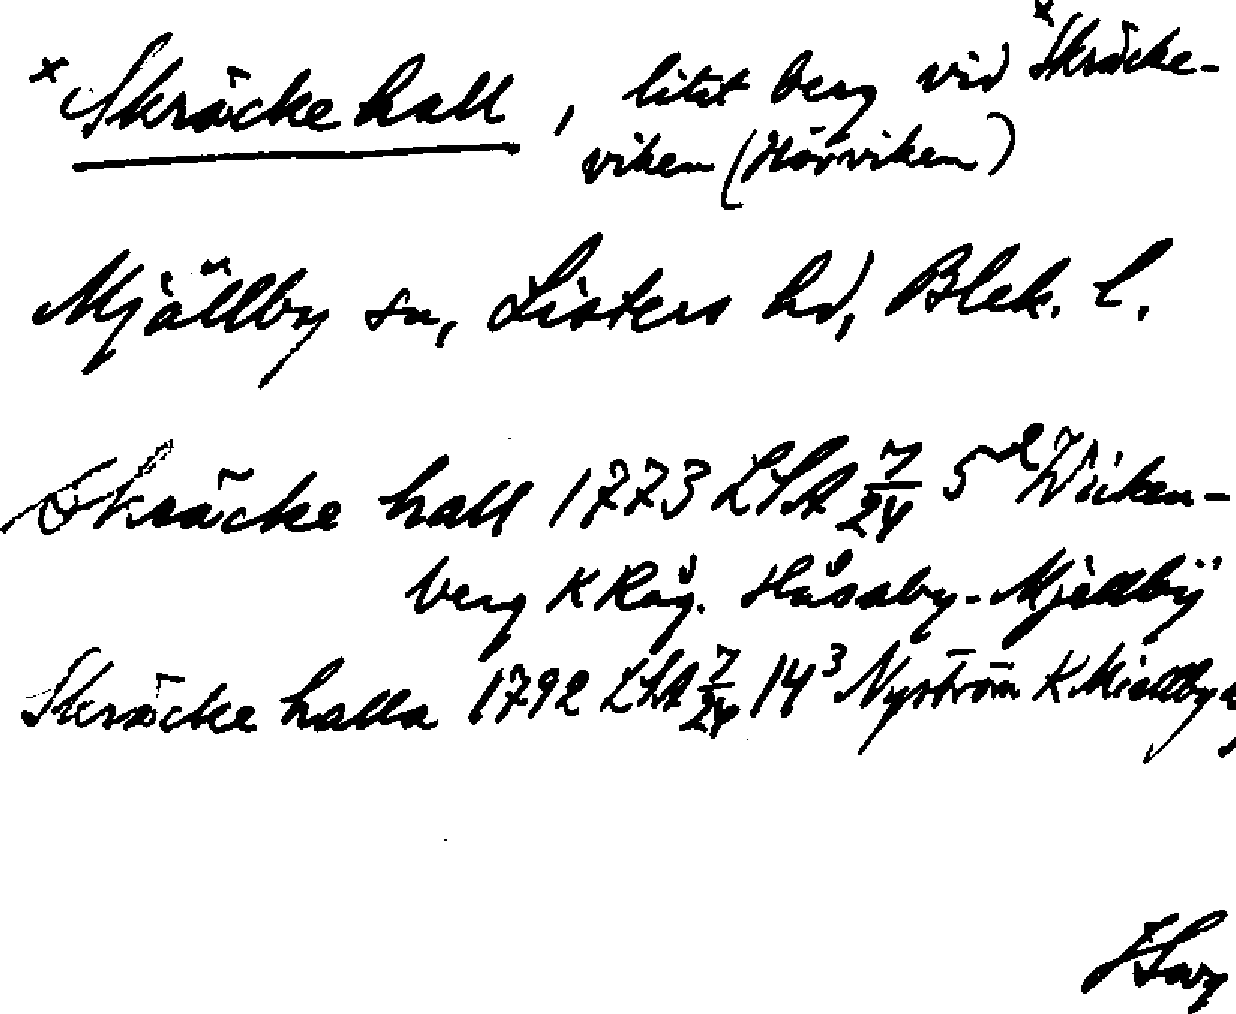 × Skräcke hall, litet berg vid × Skräcke-
viken (Hörviken)
Mjällby sn, Listers hd, Blek. l.
Skräcke hall 1773 LSA 7/24 5 Wicken-
berg K Råg. Håsaby-Mjellbÿ
Skräcke halla 1792 LSA 7/24 14³ Nyström K Miellby